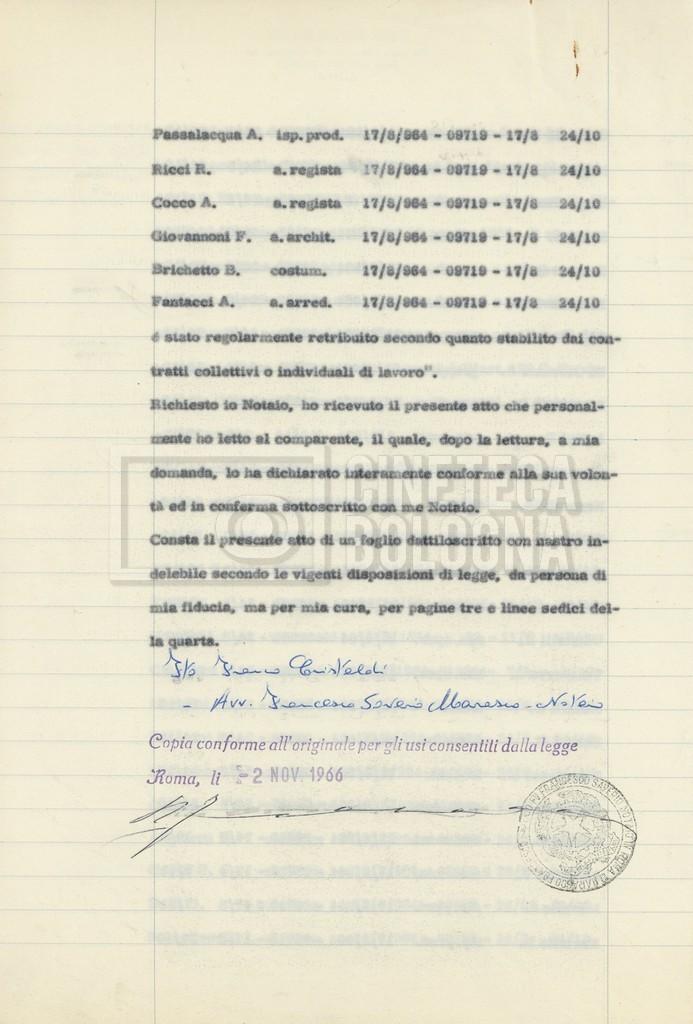 Passalacqua A. isp. prod. 17/8/964 - 09719 - 17/8 24/10
Ricci R. a. regista 17/8/964 - 09719 - 17/8 24/10
Cocco A. a. regista 17/8/964 - 09719 - 17/8 24/10
Giovannoni F. a. archit. 17/8/964 - 09719 - 17/8 24/10
Brichetto B. costum. 17/8/964 - 09719 - 17/8 24/10
Fantacci A. a. arred. 17/8/964 - 09719 - 17/8 24/10
é stato regolarmente retribuito secondo quanto stabilito dai con-
tratti collettivi o individuali di lavoro".
Richiesto io Notaio, ho ricevuto il presente atto che personal-
mente ho letto al comparente, il quale, dopo la lettura, a mia
domanda, lo ha dichiarato interamente conforme alla sua volon-
tà ed in conferma sottoscritto con me Notaio.
CINETECA
BOLOGNA
Consta il presente atto di un foglio dattiloscritto con nastro in-
delebile secondo le vigenti disposizioni di legge, da persona di
mia fiducia, ma per mia cura, per pagine tre e linee sedici del-
la quarta.
F/o Franco Cristaldi
- Avv. Francesco Saverio Maresca - Notaio
Copia conforme all'originale per gli usi consentiti dalla legge
Roma, li - 2 NOV. 1966
FRANCESCO SAVERIO ROMA